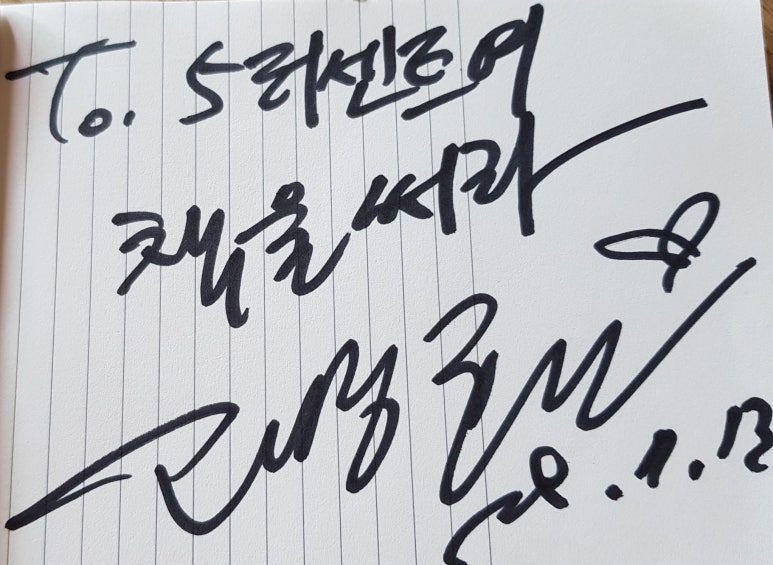 To. 5리센트여
책을써라
20.1.13